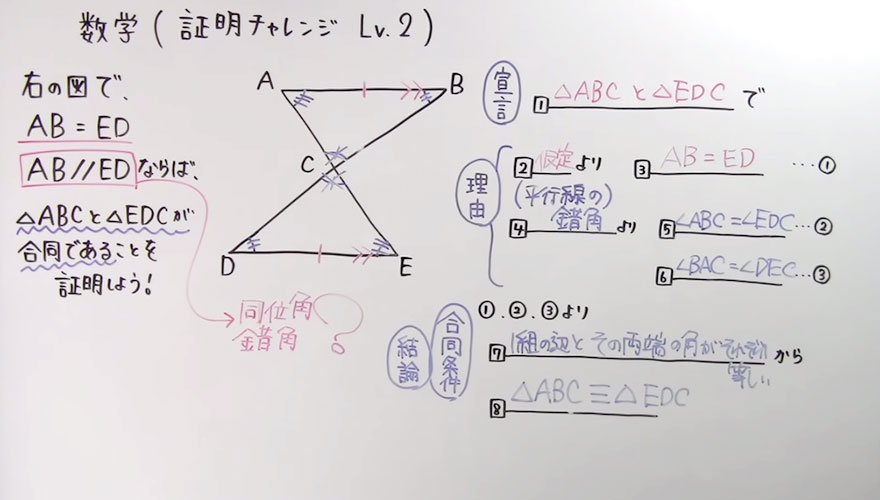 数学 ( 証明チャレンジ Lv.2 )
右の図で、
AB = ED
AB // ED ならば、
△ABCと△EDCが
合同であることを
証明しよう!
A
B
C
D
E
同位角
錯角 ?
宣言
1 △ABC と △EDC で
理由
2 仮定 より
3 AB = ED …①
(平行線の)
4 錯角 より
5 ∠ABC = ∠EDC …②
6 ∠BAC = ∠DEC …③
結論
合同条件
①.②.③より
7 1組の辺と その両端の角が それぞれ から
等しい
8 △ABC ≡ △EDC